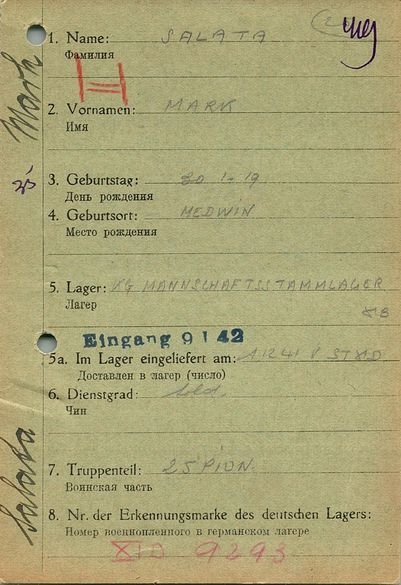 1. Name: SALATA
Фамилия
H
2. Vornamen: MARK
Имя
3. Geburtstag: 30 1-19
День рождения
4. Geburtsort: MEDWIN
Место рождения
5. Lager: KG MANNSCHAFTSSTAMMLAGER
Лагер
XI B
Eingang 9 1 42
5a. Im Lager eingeliefert am: 1.12 41
Доставлен в лагер (число)
6. Dienstgrad: Sold.
Чин
7. Truppenteil: 25 PION.
Воинская часть
8. Nr. der Erkennungsmarke des deutschen Lagers:
Номер военнопленного в германском лагере
XI D 9293
Salata Mark
25